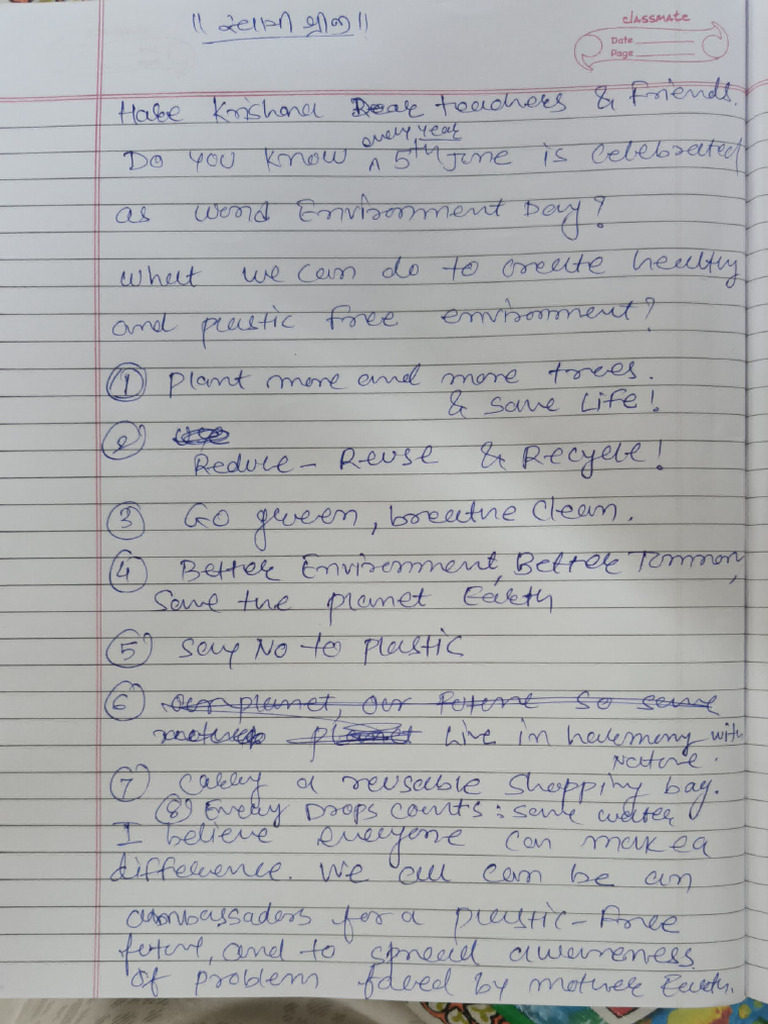 || ||
classmate
Date
Page
Hare Krishna Dear teachers & Friends.
every year
Do you know ^ 5th June is celebrated
as world Environment Day?
what we can do to create healthy
and plastic free environment?
① Plant more and more trees.
& save Life!
②
Reduce - Reuse & Recycle!
③ Go green, breathe clean.
④ Better Environment, Better Tommorow,
Save the planet Earth
⑤ Say No to plastic
⑥ our planet, our future so save
Live in harmony with
Nature.
⑦ Carry a reusable shopping bag.
⑧ Every Drops counts: save water
I believe everyone can make a
difference. We all can be an
ambassadors for a plastic-free
future, and to spread awareness
of problem faced by mother Earth.